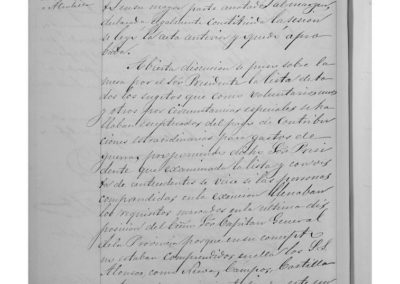 en su mayor parte anotados al margen,
declarado legalmente Constituida la sesion
se leyó la acta anterior y quedó apro-
bada.
Abierta discusion se puso sobre la
mesa por el Sor Presidente la lista de to-
dos los sugetos que como voluntarios unos
y otros por circunstancias especiales se ha-
llaban esceptuados del pago de Contribu-
ciones estraordinarias para gastos de
guerra, proponiendo dicho Sor Presi-
dente que examinada la lista y con vis-
ta de antecedentes se viese si las personas
comprendidas en la exencion llenaban
los requisitos marcados en la ultima dis-
posicion del Exmo Sor Capitan General
de la Provincia porque en su concepto
no estaban comprendidos en ella los S.S.
Alonso, como Campos, Castella